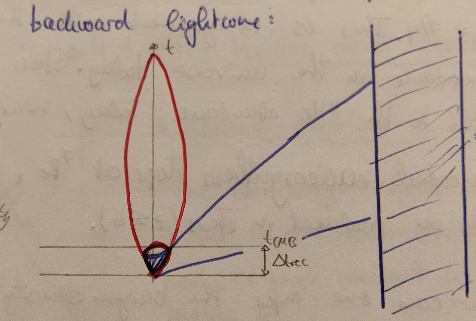 backward lightcone:
t
t_CMB
Δt_rec